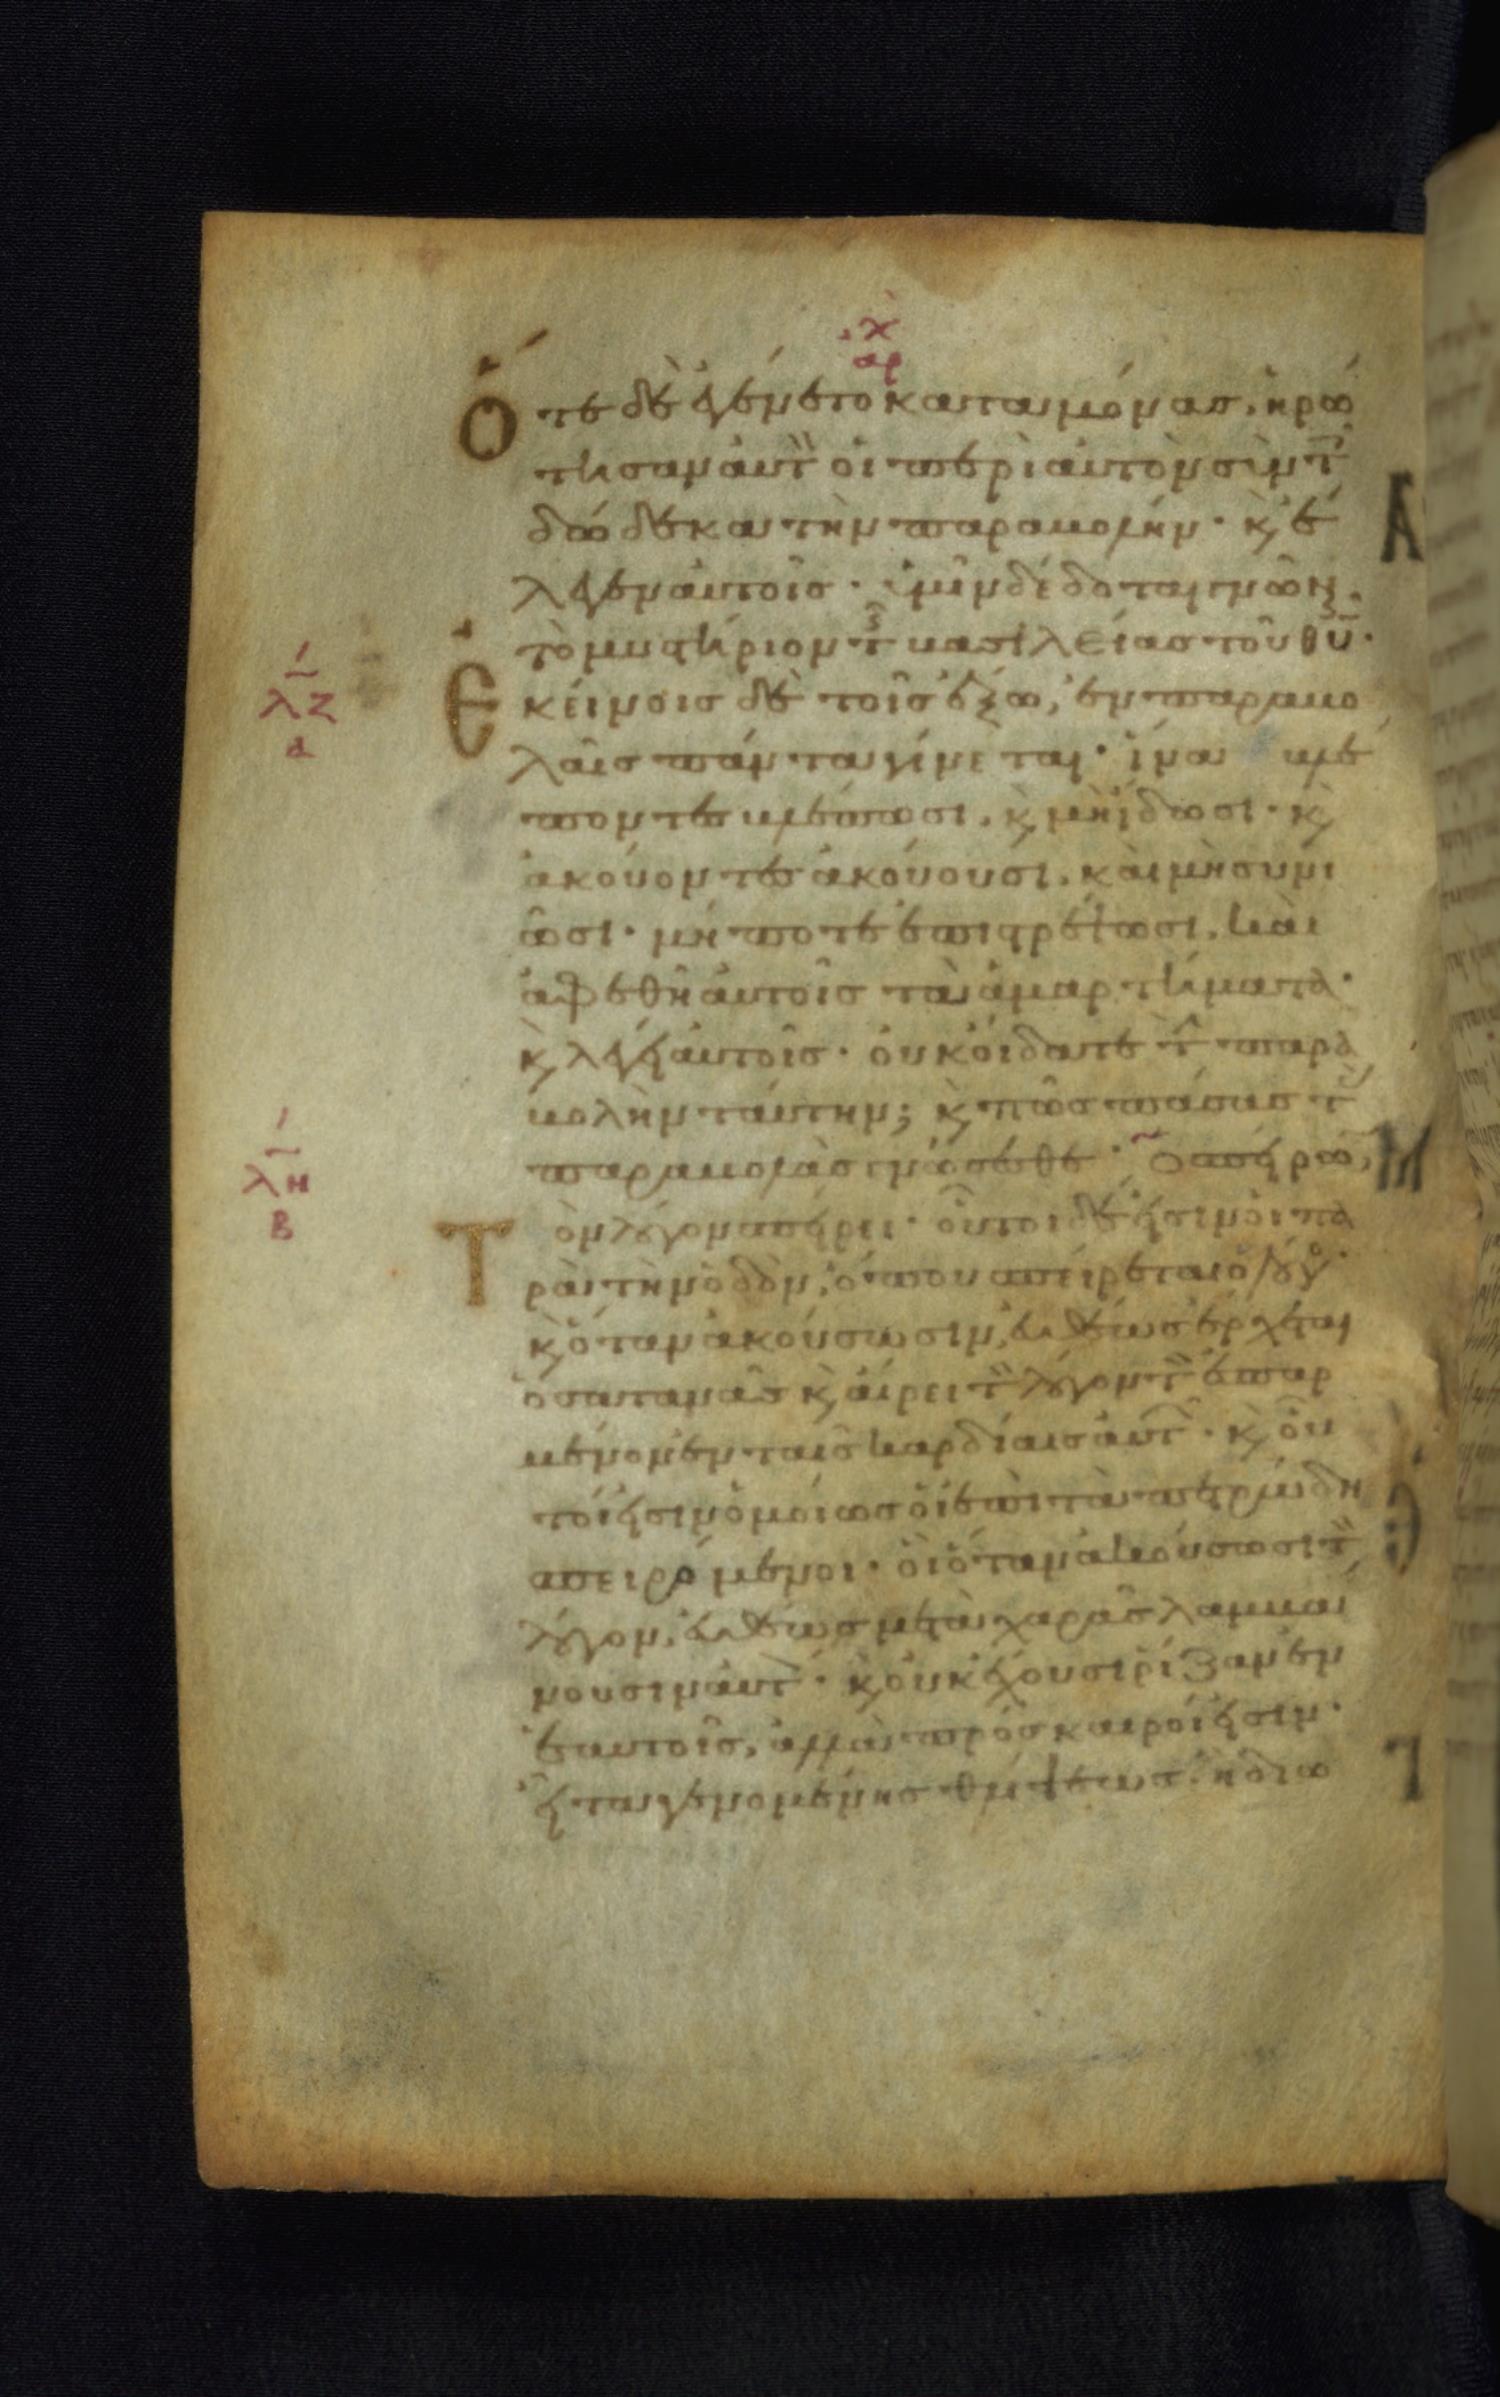 χ
αρ
Ὅτε δὲ ἐγένετο καταμόνας, ἠρώ
τησαν αὐτ οἱ περὶ αὐτὸν σὺν τ
δώδεκα τὴν παραβολήν· κ ἔ
λεγεν αὐτοῖς· ὑμῖν δέδοται γνῶν
τὸ μυστήριον τ βασιλείας τοῦ θυ·
λζ
α
Ἐκείνοις δὲ τοῖς ἔξω, ἐν παραβο
λαῖς πάντα γίνεται· ἵνα βλέ
ποντες βλέπωσι, κ μὴ ἴδωσι· κ
ἀκούοντες ἀκούουσι, καὶ μὴ συνι
ῶσι· μήποτε ἐπιστρέψωσι, καὶ
ἀφεθῆ αὐτοῖς τὰ ἁμαρτήματα·
κ λέγει αὐτοῖς· οὐκ οἴδατε τ παρα
βολὴν ταύτην; κ πῶς πάσας τ
παραβολὰς γνώσεσθε· Ὁ σπείρων,
λη
β
Τὸν λόγον σπείρει· οὗτοι δέ εἰσιν οἱ πα
ρὰ τὴν ὁδὸν, ὅπου σπείρεται ὁ λόγο·
κ ὅταν ἀκούσωσιν, εὐθέως ἔρχεται
ὁ σατανᾶς κ αἴρει τ λόγον τ ἐσπαρ
μένον ἐν ταῖς καρδίαις αὐτ· κ οὗ
τοί εἰσιν ὁμοίως οἱ ἐπὶ τὰ πετρώδη
σπειρόμενοι· οἳ ὅταν ἀκούσωσι τ
λόγον, εὐθέως μετὰ χαρᾶς λαμβά
νουσιν αὐτ· κ οὐκ ἔχουσι ρίζαν ἐν
ἑαυτοῖς, ἀλλὰ πρόσκαιροί εἰσιν·
εἶτα γενομένης θλίψεως ἢ διω